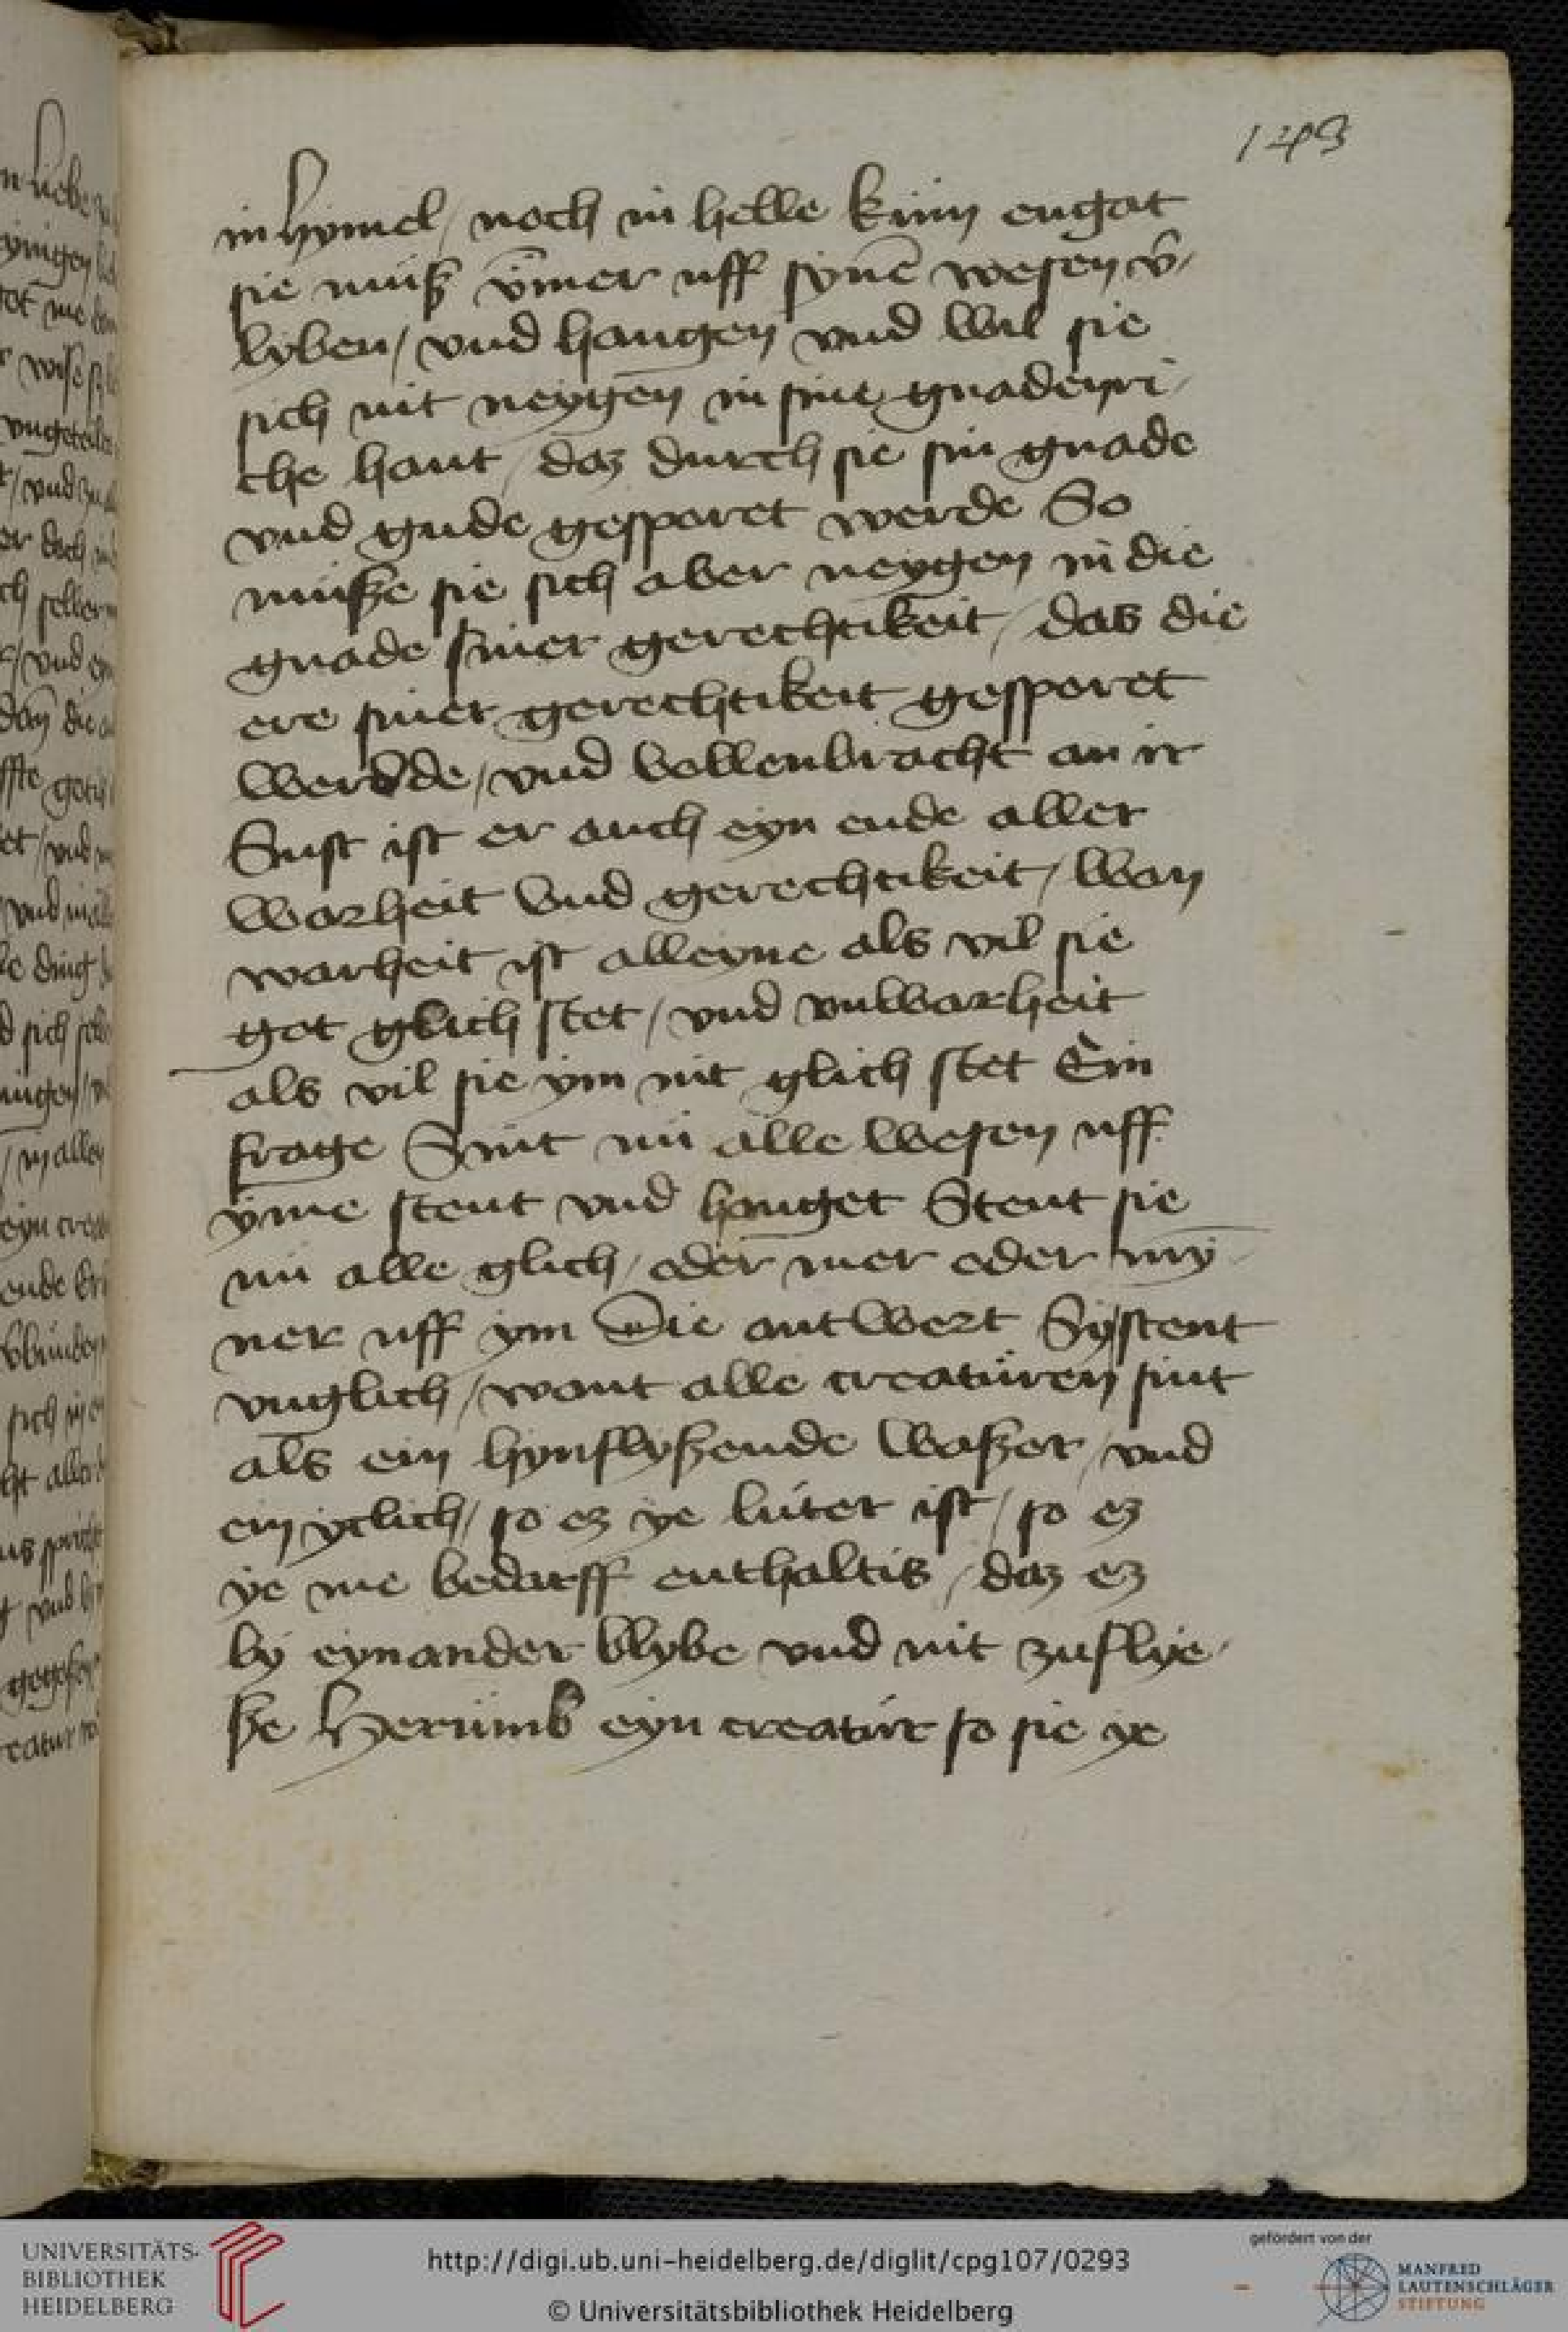 143
in hymel / noch in helle kum engat
sie muß ÿmer uff synē wesen v̄/
lyben / vnd hangen vnd wil sie
sich nit neygen in sine gnadenri/
che hant / daz durch sie sin gnade
vnd gude gesparet werde So
muße sie sich aber neygen in die
gnade siner gerechtikeit / das die
ere siner gerechtikeit gesparet
werdde / vnd vollenbracht an ir
Sust ist er auch eyn ende aller
warheit vnd gerechtikeit / wan
warheit ist alleyne als vil sie
got glich stet / vnd vnwarheit
als vil sie ym nit glich stet Ein
frage Sint nü alle wesen uff
yme stent vnd hanget Stent sie
nü alle glich / oder mer oder my̅
ner uff ym Die antwert Sy stent
vnglich / want alle creaturen sint
als ein hynflyßende waßer / vnd
ein yclich / so ez ye luter ist / so ez
ye me bedarff enthaltis / daz ez
by eynander blybe vnd nit zuflye/
ße Herumb eyn creatur so sie ye
UNIVERSITÄTS-
BIBLIOTHEK
HEIDELBERG
http://digi.ub.uni-heidelberg.de/diglit/cpg107/0293
© Universitätsbibliothek Heidelberg
gefördert von der
MANFRED
LAUTENSCHLÄGER
STIFTUNG